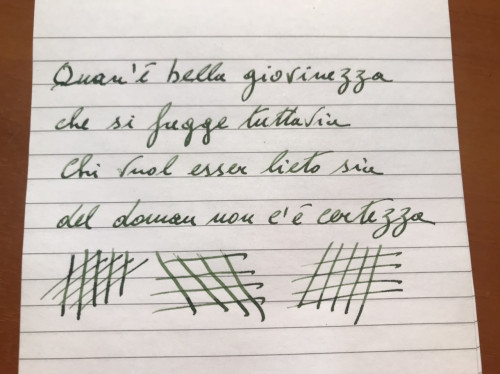 Quan'è bella giovinezza
che si fugge tuttavia
Chi vuol esser lieto sia
del doman non c'è certezza